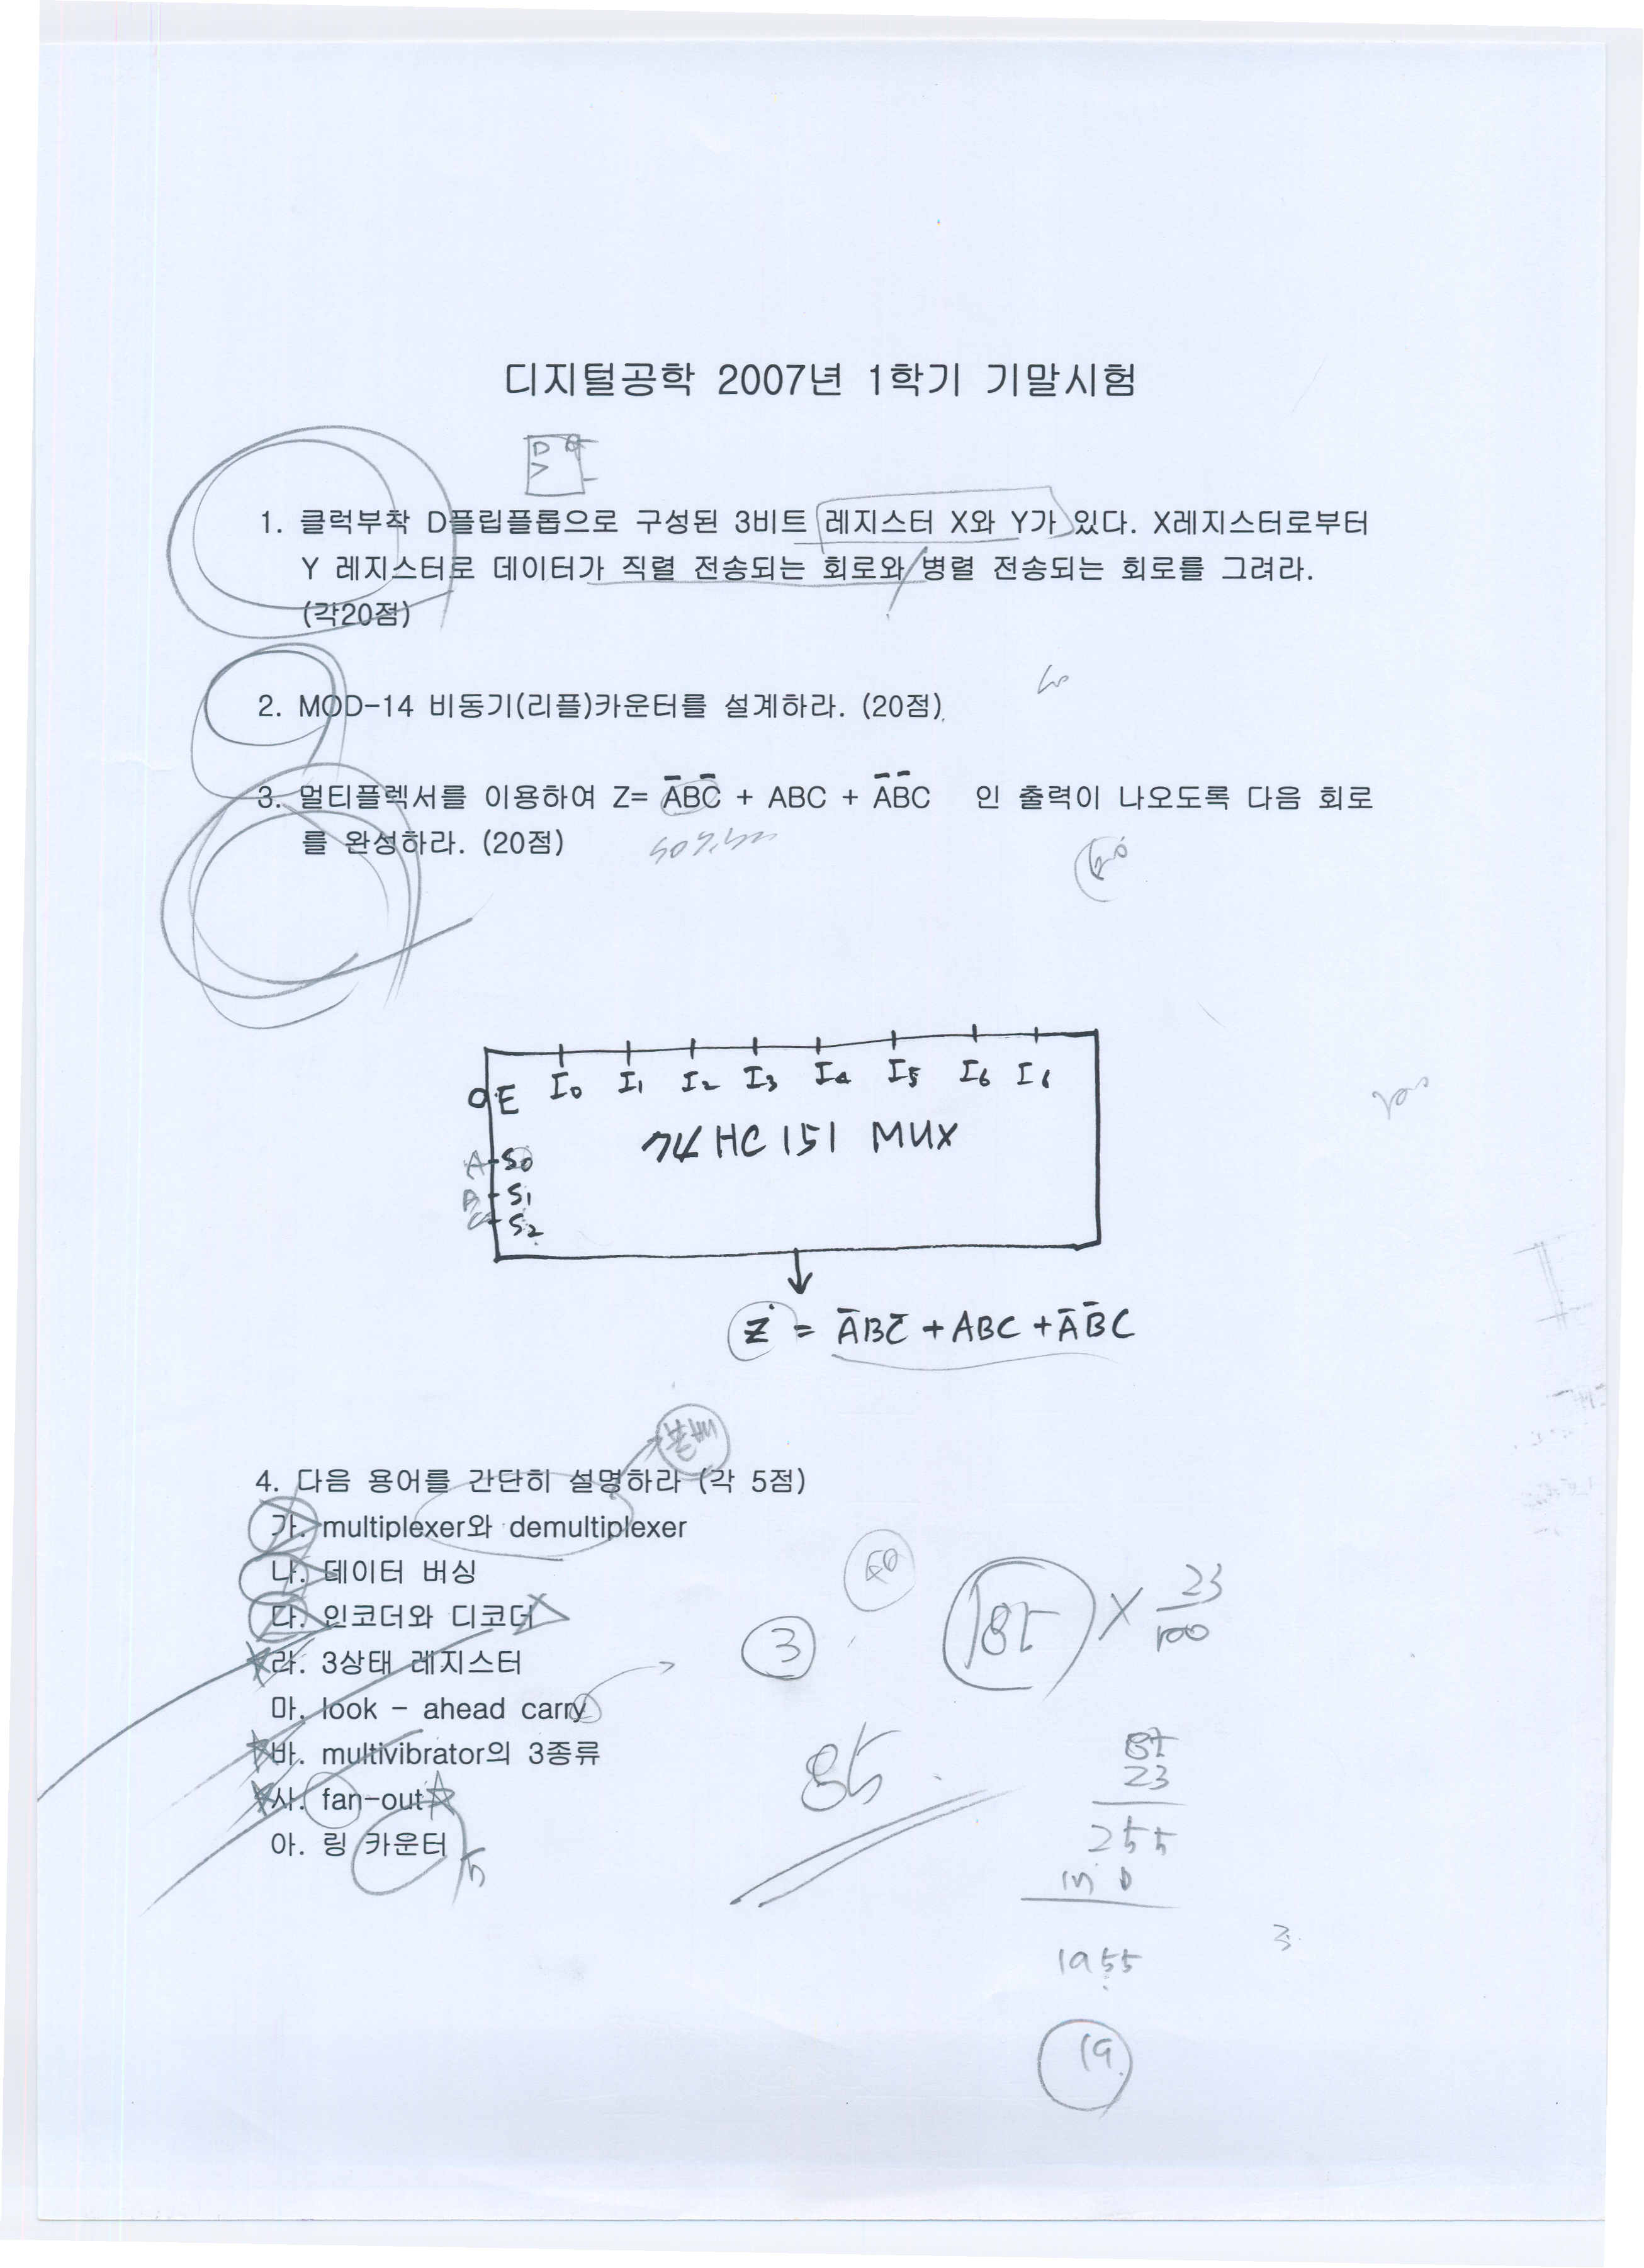 디지털공학 2007년 1학기 기말시험
D Q
1. 클럭부착 D플립플롭으로 구성된 3비트 레지스터 X와 Y가 있다. X레지스터로부터
Y 레지스터로 데이터가 직렬 전송되는 회로와 병렬 전송되는 회로를 그려라.
(각20점)
2. MOD-14 비동기(리플)카운터를 설계하라. (20점)
3. 멀티플렉서를 이용하여 Z= A̅BC̅ + ABC + A̅B̅C 인 출력이 나오도록 다음 회로
를 완성하라. (20점)
E I₀ I₁ I₂ I₃ I₄ I₅ I₆ I₆
74HC151 MUX
A S₀
B S₁
C S₂
Z = A̅BC̅ + ABC + A̅B̅C
4. 다음 용어를 간단히 설명하라 (각 5점)
가. multiplexer와 demultiplexer
나. 데이터 버싱
다. 인코더와 디코더
라. 3상태 레지스터
마. look - ahead carry
바. multivibrator의 3종류
사. fan-out
아. 링 카운터
3
185 × 23/100
85
85
23
255
1955
19